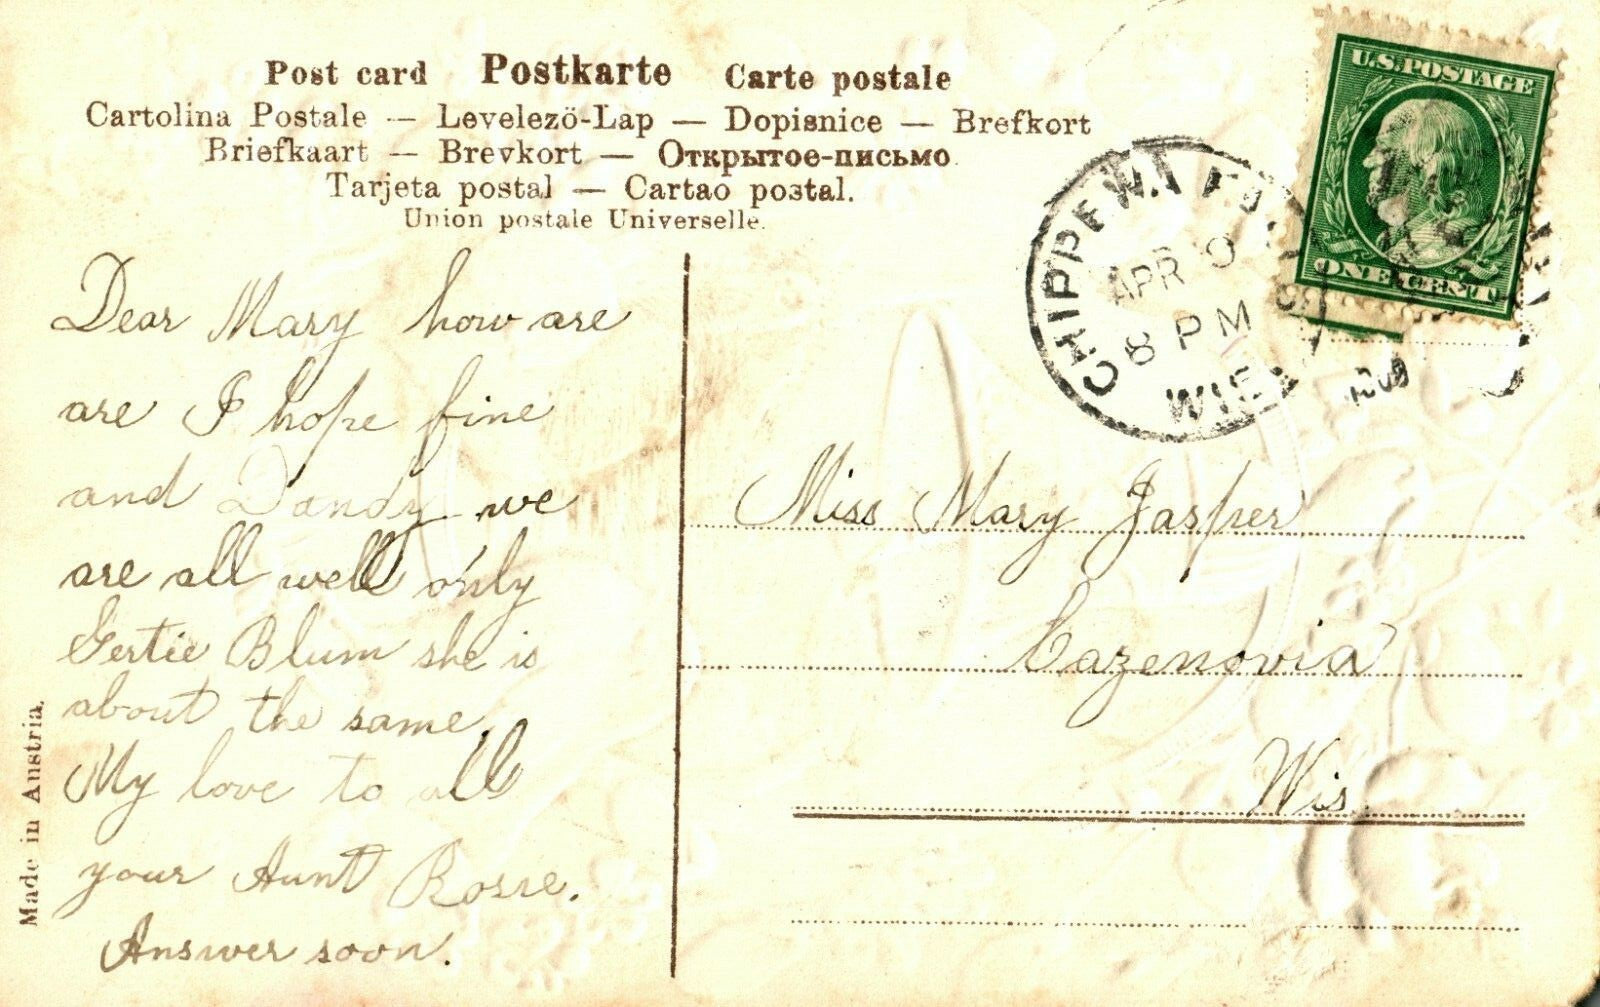 Post card Postkarte Carte postale
Cartolina Postale — Levelező-Lap — Dopisnice — Brefkort
Briefkaart — Brevkort — Открытое-письмо
Tarjeta postal — Cartao postal.
Union postale Universelle.
U.S. POSTAGE
ONE CENT
CHIPPEWA FALLS
APR 9
8 PM
WIS
Dear Mary how are
are I hope fine
and Dandy we
are all well only
Gertie Blum she is
about the same.
My love to all
your Aunt Rosie.
Answer soon.
Miss Mary Jasper
Cazenovia
Wis.
Made in Austria.